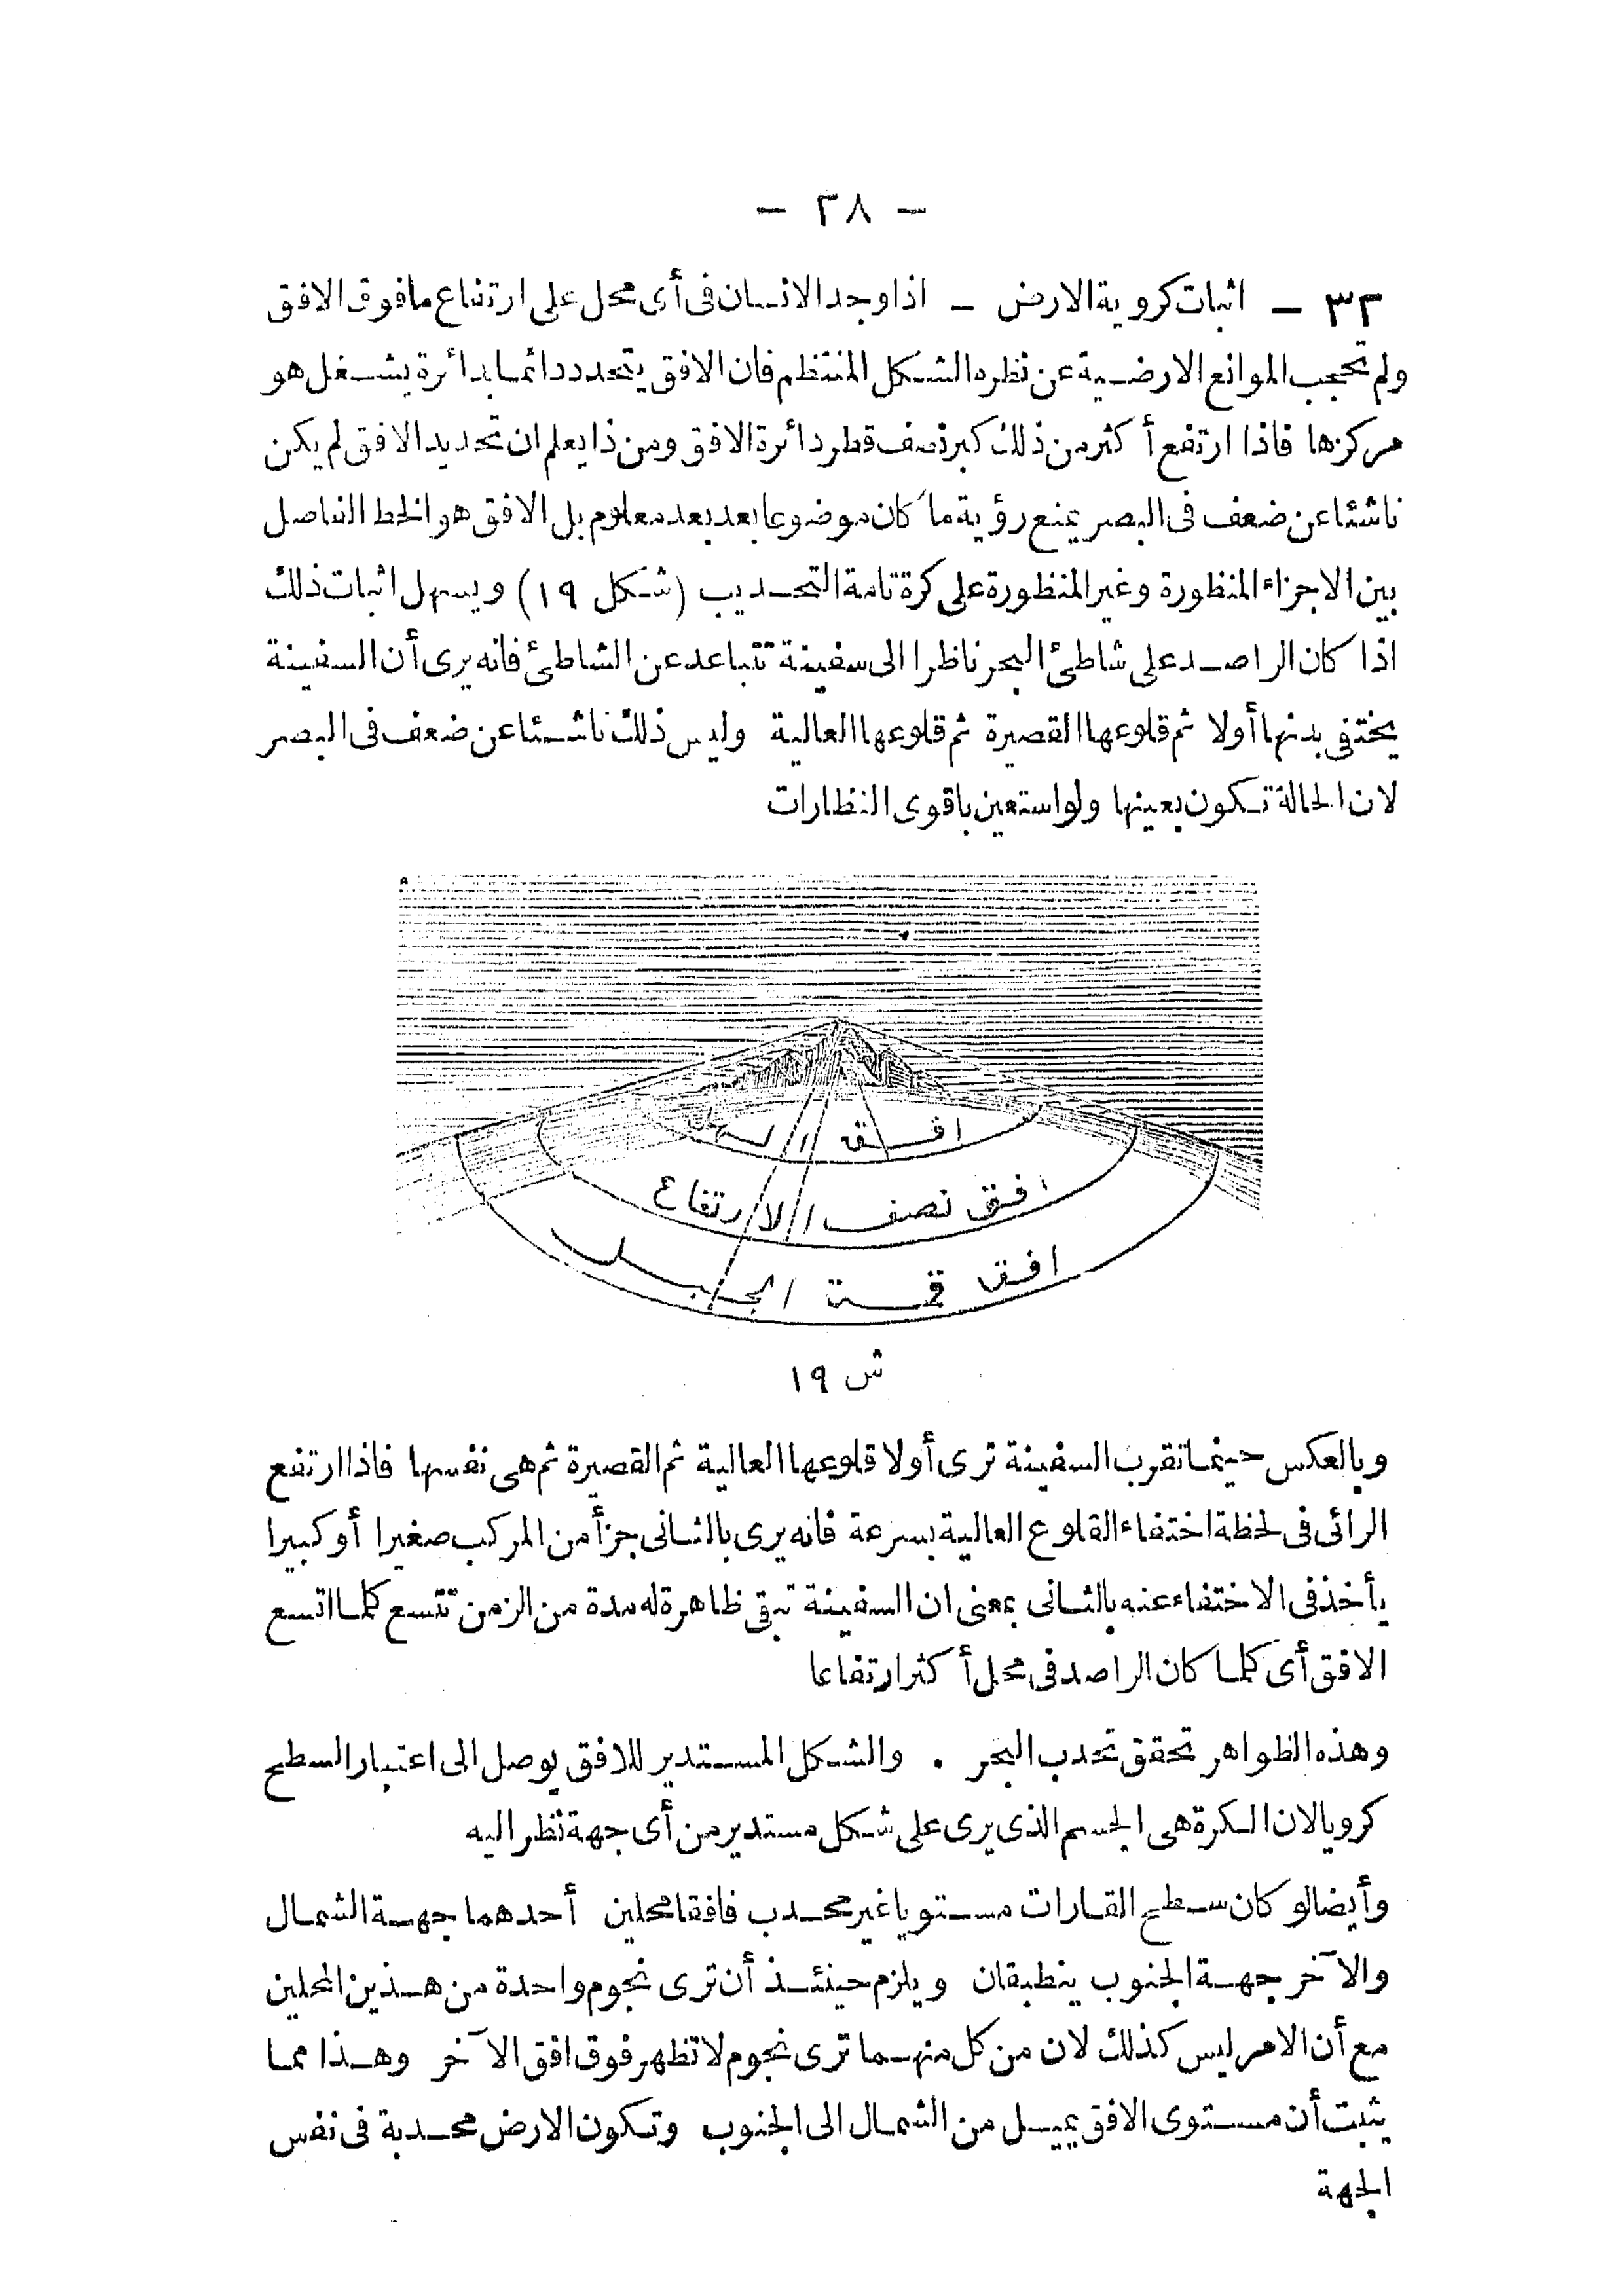 — ٢٨ —
٣٣ — اثبات كروية الارض — اذا وجد الانسان فى أى محل على ارتفاع ما فوق الافق
ولم تحجب الموانع الارضية عن نظره الشكل المنتظم فان الافق يتحدد دائما بدائرة يشغل هو
مركزها فاذا ارتفع أكثر من ذلك كبر نصف قطر دائرة الافق ومن ذا يعلم ان تحديد الافق لم يكن
ناشئا عن ضعف فى البصر يمنع رؤية ما كان موضوعا بعد بعد معلوم بل الافق هو الخط الفاصل
بين الاجزاء المنظورة وغير المنظورة على كرة تامة التحديب (شكل ١٩) ويسهل اثبات ذلك
اذا كان الراصد على شاطئ البحر ناظرا الى سفينة تتباعد عن الشاطئ فانه يرى أن السفينة
يختفى بدنها أولا ثم قلوعها القصيرة ثم قلوعها العالية وليس ذلك ناشئا عن ضعف فى البصر
لان الحالة تكون بعينها ولو استعين باقوى النظارات
افق
افق نصف الارتفاع
افق قمة الجبل
ش ١٩
وبالعكس حينما تقرب السفينة ترى أولا قلوعها العالية ثم القصيرة ثم هى نفسها فاذا ارتفع
الرائى فى لحظة اختفاء القلوع العالية بسرعة فانه يرى بالثانى جزأ من المركب صغيرا أو كبيرا
يأخذ فى الاختفاء عنه بالثانى بمعنى ان السفينة تبقى ظاهرة له مدة من الزمن تتسع كلما اتسع
الافق أى كلما كان الراصد فى محل أكثر ارتفاعا
وهذه الظواهر تحقق تحدب البحر . والشكل المستدير للافق يوصل الى اعتبار السطح
كرويا لان الكرة هى الجسم الذى يرى على شكل مستدير من أى جهة نظر اليه
وأيضا لو كان سطح القارات مستويا غير محدب فافقا محلين أحدهما جهة الشمال
والآخر جهة الجنوب ينطبقان ويلزم حينئذ أن ترى نجوم واحدة من هذين المحلين
مع أن الامر ليس كذلك لان من كل منهما ترى نجوم لا تظهر فوق افق الآخر وهذا مما
يثبت أن مستوى الافق يميل من الشمال الى الجنوب وتكون الارض محدبة فى نفس
الجهة